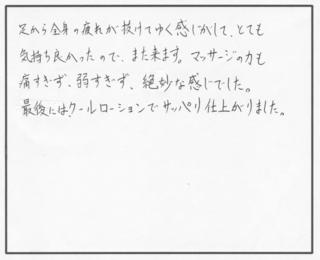 足から全身の疲れが抜けてゆく感じがして、とても
気持ち良かったので、また来ます。マッサージの力も
痛すぎず、弱すぎず、絶妙な感じでした。
最後にはクールローションでサッパリ仕上がりました。